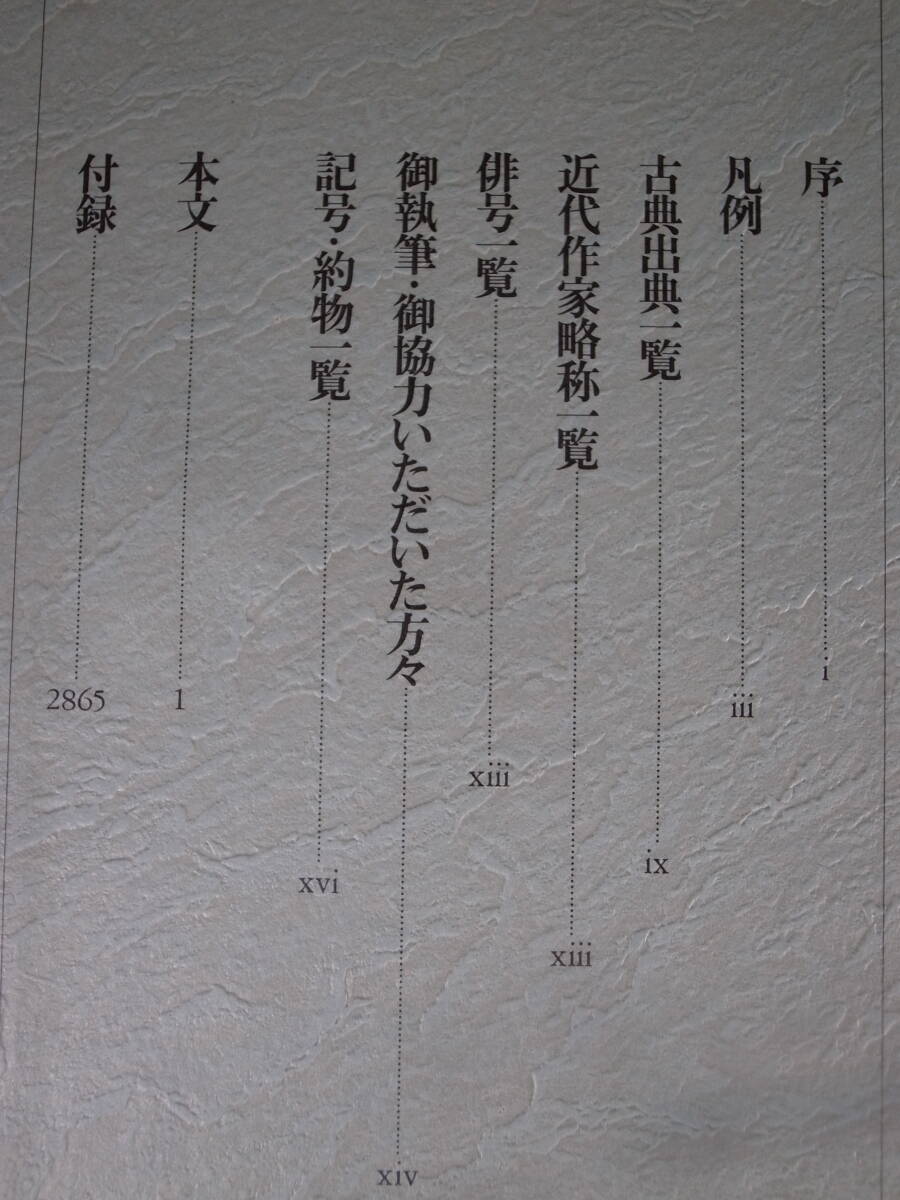 序……i
凡例……iii
古典出典一覧……ix
近代作家略称一覧……xiii
俳号一覧……xiii
御執筆・御協力いただいた方々……xiv
記号・約物一覧……xvi
本文……1
付録……2865